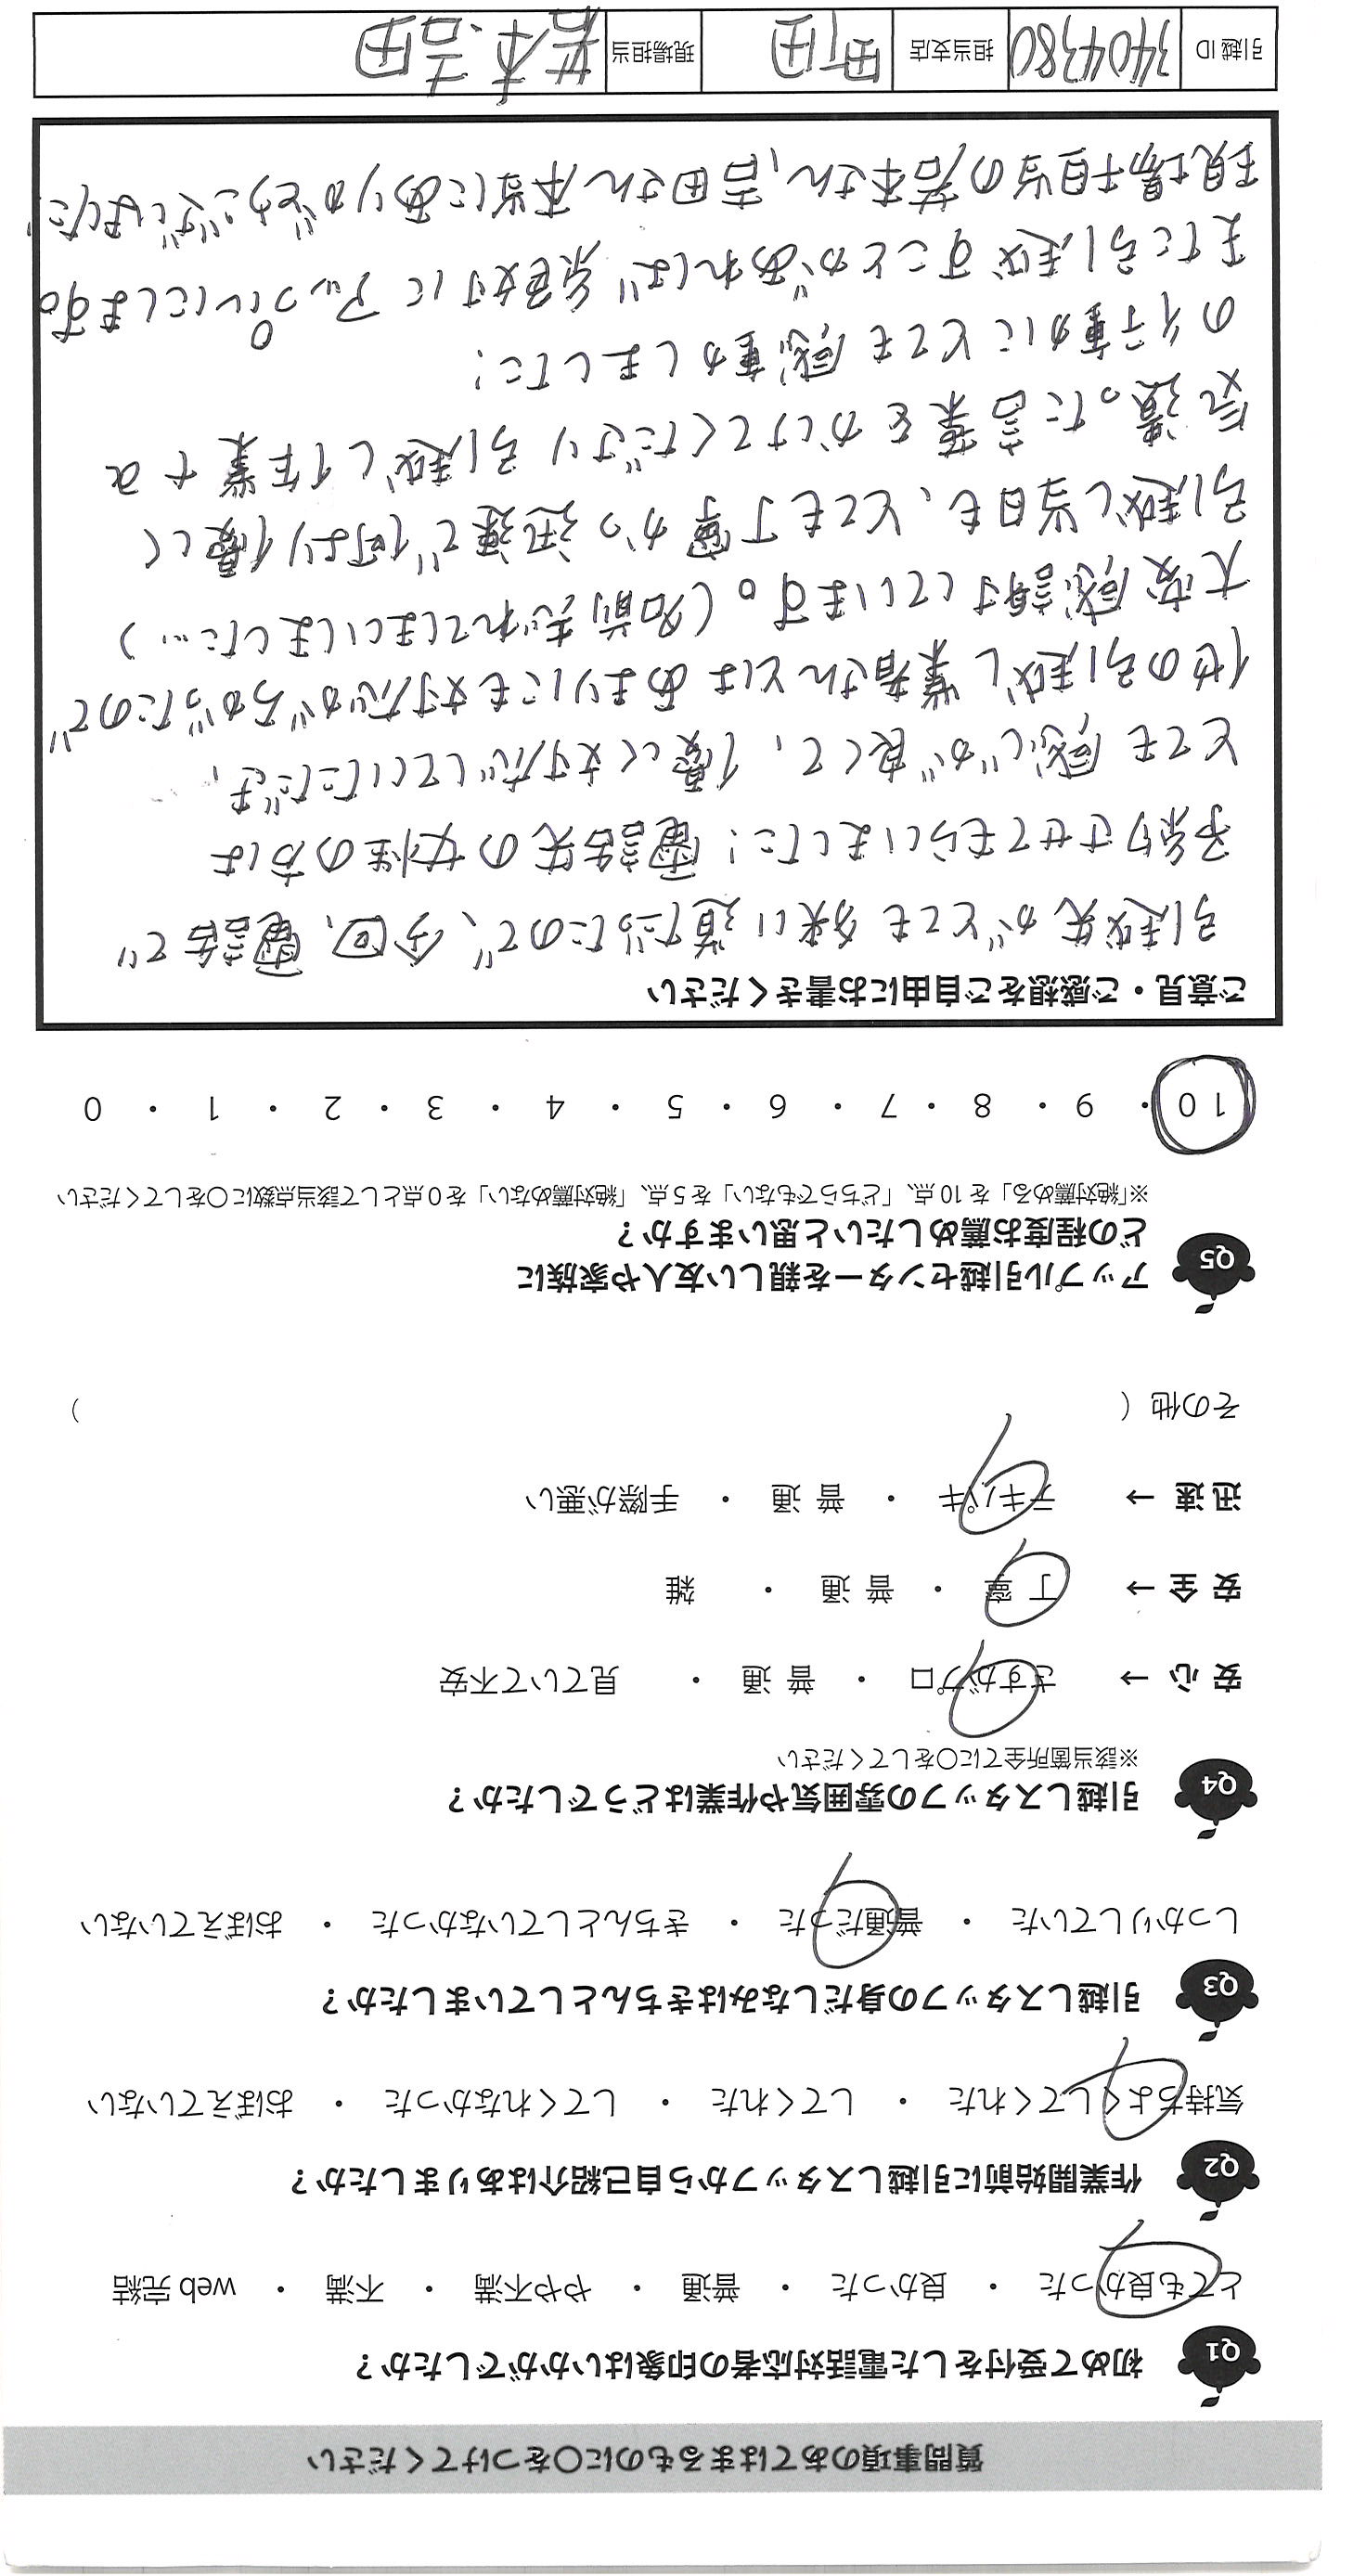 質問事項のあてはまるものに〇をつけてください
Q1 初めて受付をした電話対応者の印象はいかがでしたか？
とても良かった ・ 良かった ・ 普通 ・ やや不満 ・ 不満 ・ web 完結
Q2 作業開始前に引越しスタッフから自己紹介はありましたか？
気持ちよくしてくれた ・ してくれた ・ してくれなかった ・ おぼえていない
Q3 引越しスタッフの身だしなみはきちんとしていましたか？
しっかりしていた ・ 普通だった ・ きちんとしていなかった ・ おぼえていない
Q4 引越しスタッフの雰囲気や作業はどうでしたか？
※該当箇所全てに〇をしてください
安 心 → さすがプロ ・ 普 通 ・ 見ていて不安
安 全 → 丁 寧 ・ 普 通 ・ 雑
迅 速 → テキパキ ・ 普 通 ・ 手際が悪い
その他（ ）
Q5 アップル引越センターを親しい友人や家族に
どの程度お薦めしたいと思いますか？
※「絶対薦める」を 10 点、「どちらでもない」を 5 点、「絶対薦めない」を 0 点として該当点数に〇をしてください
10 ・ 9 ・ 8 ・ 7 ・ 6 ・ 5 ・ 4 ・ 3 ・ 2 ・ 1 ・ 0
ご意見・ご感想をご自由にお書きください
引越先がとても狭い道だったので、今回、電話で
予約させてもらいました！電話先の女性の方は
とても感じが良くて、優しく対応していただき、
他の引越し業者さんとはあまりにも対応がちがったので
大変感謝しています。（名前忘れてしまいました…）
引越し当日も、とても丁寧かつ迅速で何より優しく
気遣った言葉をかけてくださり引越し作業中の
の行動にとても感動しました！
また引越すことがあれば絶対にアップルにします。
現場担当の若本さん、吉田さん本当にありがとうございました！
引越 ID 3404380 担当支店 町田 現場担当 若本、吉田